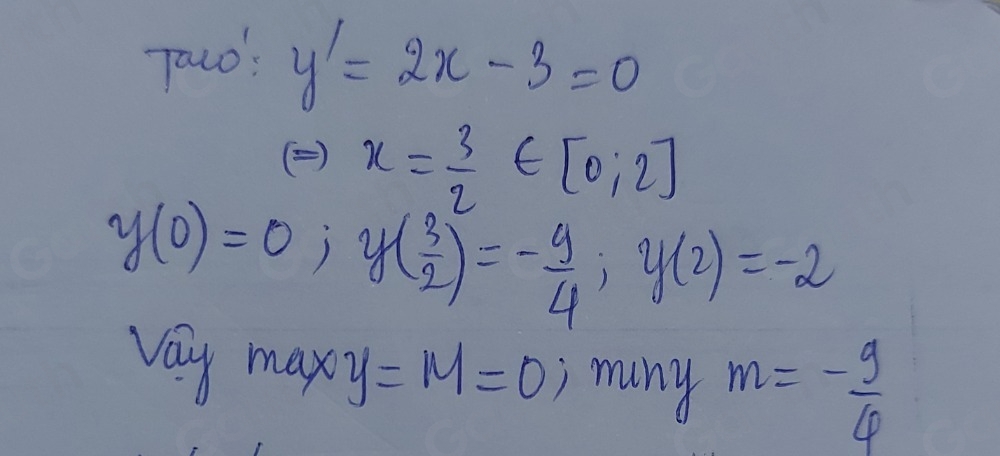 Ta có: y' = 2x - 3 = 0
(=) x = 3/2 ∈ [0; 2]
y(0) = 0; y(3/2) = -9/4; y(2) = -2
Vậy max y = M = 0; min y m = -9/4